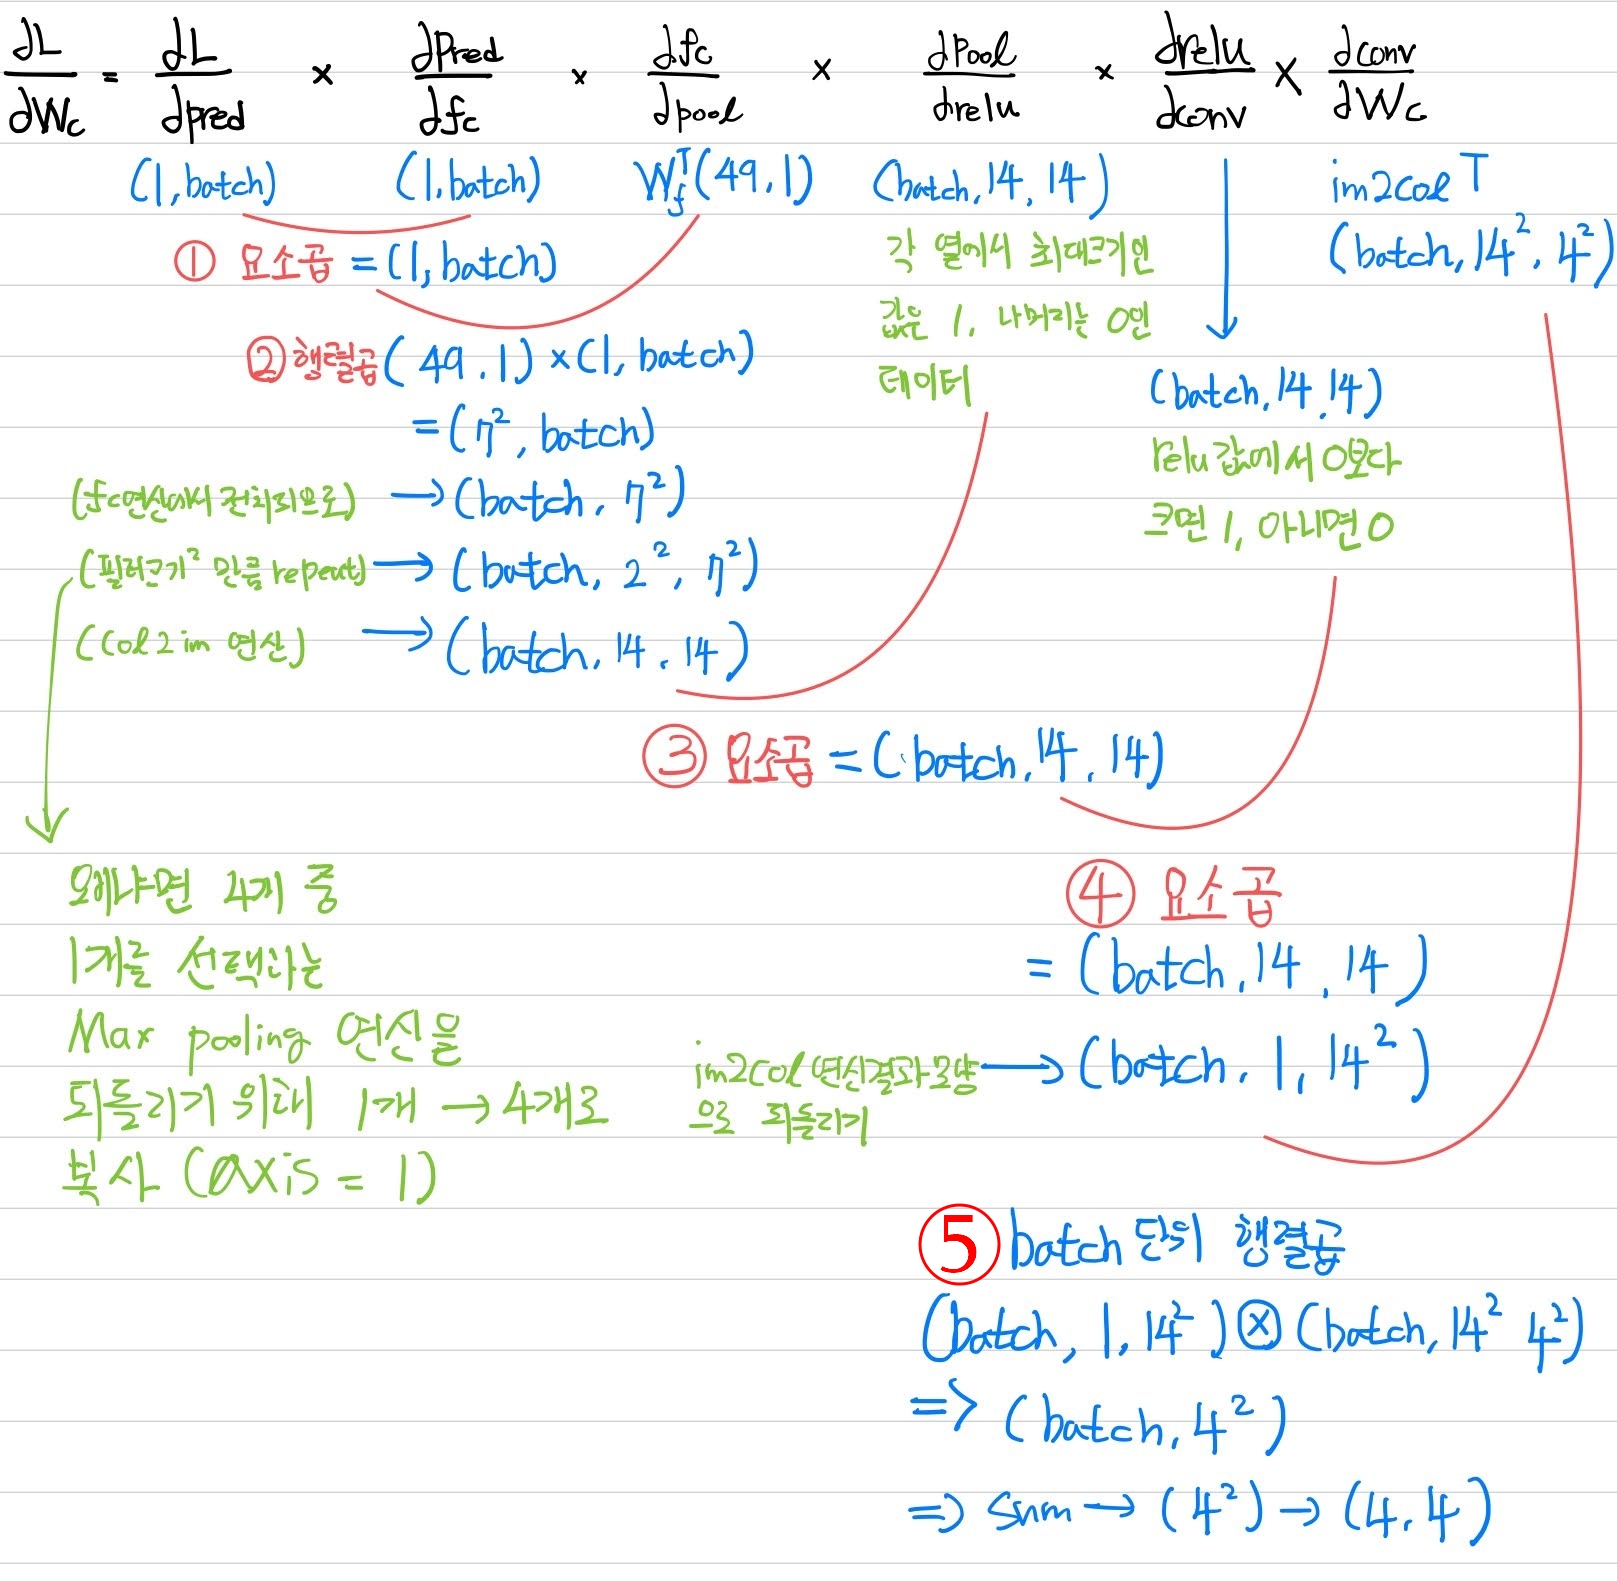 ∂L/∂Wc = ∂L/∂pred × ∂Pred/∂fc × ∂fc/∂pool × ∂Pool/∂relu × ∂relu/∂conv × ∂conv/∂Wc
(1,batch) (1,batch) Wf^T(49,1) (batch,14,14) im2col T
(batch, 14², 4²)
① 요소곱 = (1, batch)
각 열에서 최대크기인
값은 1, 나머지는 0인
데이터
② 행렬곱 (49,1) × (1, batch)
= (7², batch)
(batch,14,14)
relu값에서 0보다
크면 1, 아니면 0
(fc연산에서 전치되므로) → (batch, 7²)
(필터크기² 만큼 repeat) → (batch, 2², 7²)
(Col2im 연산) → (batch, 14, 14)
③ 요소곱 = (batch, 14, 14)
왜냐면 4개 중
1개를 선택하는
Max pooling 연산을
되돌리기 위해 1개 → 4개로
복사 (axis = 1)
④ 요소곱
= (batch, 14, 14)
im2col 연산결과모양 → (batch, 1, 14²)
으로 되돌리기
⑤ batch 단위 행렬곱
(batch, 1, 14²) ⊗ (batch, 14² 4²)
=> (batch, 4²)
=> sum → (4²) → (4, 4)